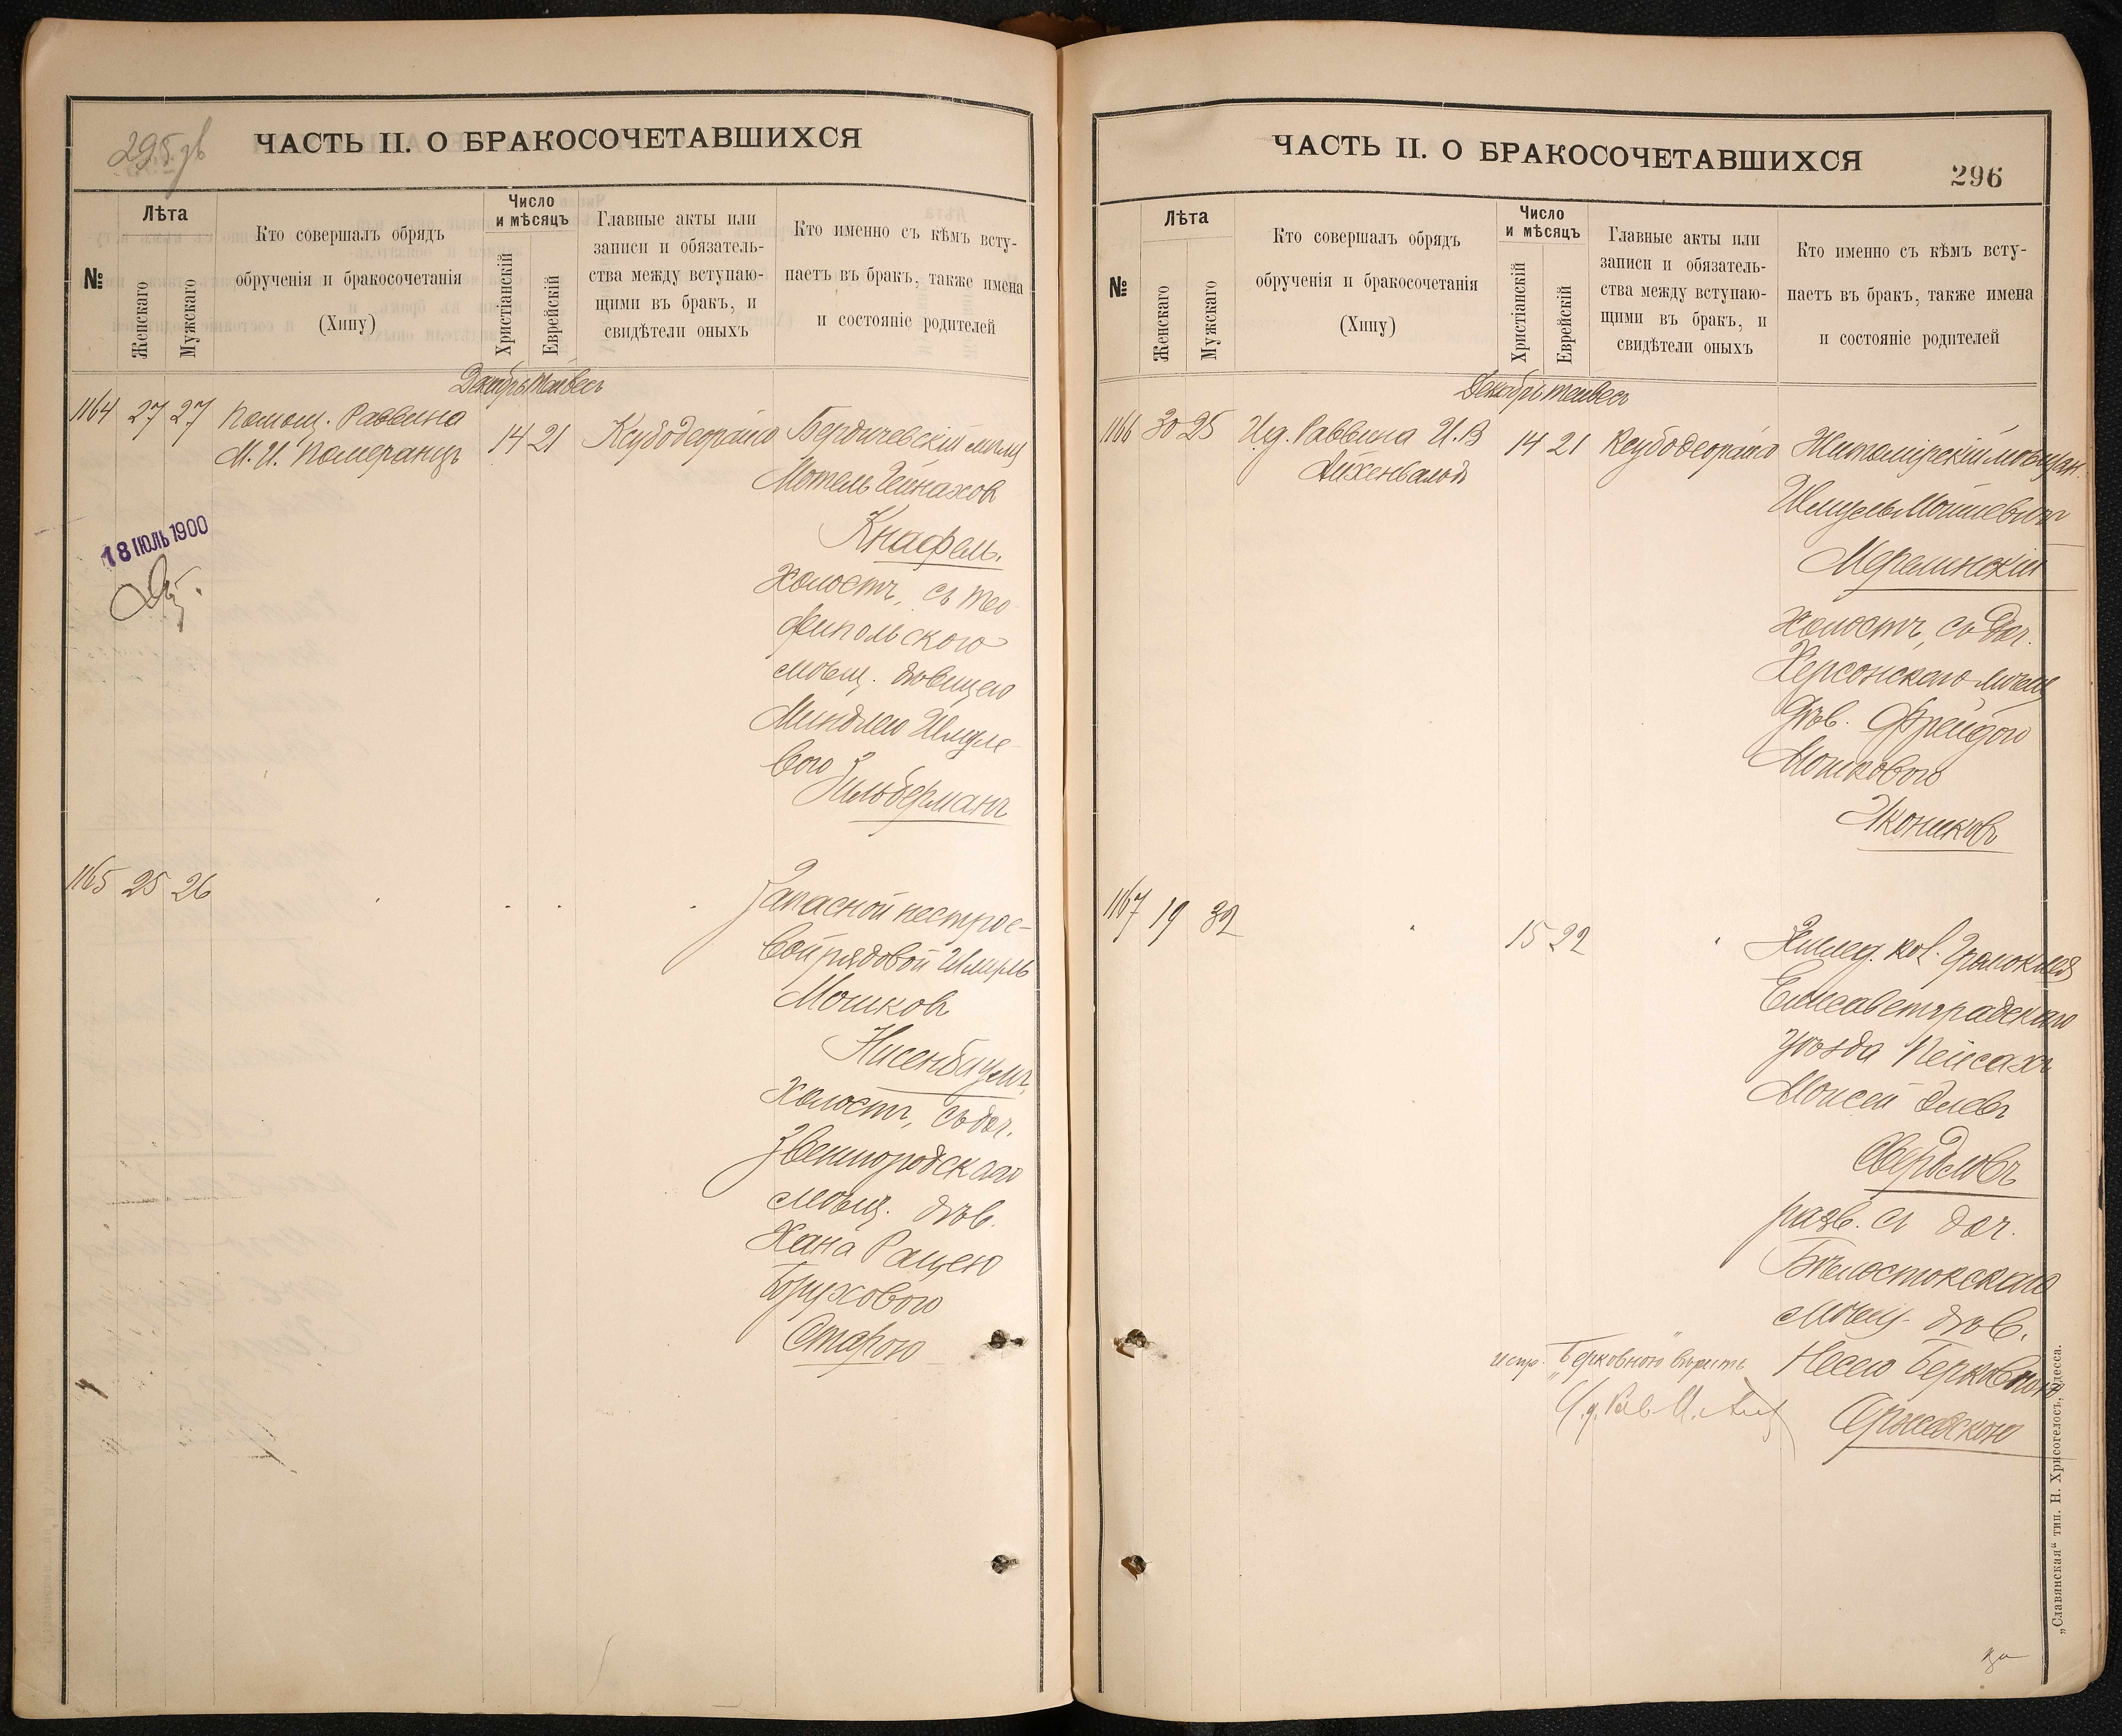 295 зв
ЧАСТЬ II. О БРАКОСОЧЕТАВШИХСЯ
№
Лѣта
Женскаго
Мужскаго
Кто совершалъ обрядъ
обрученія и бракосочетанія
(Хипу)
Число
и мѣсяцъ
Христіанскій
Еврейскій
Главные акты или
записи и обязатель-
ства между вступаю-
щими въ бракъ, и
свидѣтели оныхъ
Кто именно съ кѣмъ всту-
паетъ въ бракъ, также имена
и состояніе родителей
Декабрь Тейвесъ
1164 27 27 Помощ. Раввина 14 21 Ксубодеорайсо Бердичевскій мѣщ
М. И. Померанцъ
Мотель Гейнахов
Кнафель.
18 ІЮЛЬ 1900
холостъ, съ Тео
фипольскою
мѣщ. дѣвицею
Миндлею Шмуле
вою
Зильберманъ
1165 25 26 Запасной нестрое-
вой рядовой Шмуль
Мошковъ
Нисенбаумъ,
холостъ, съ доч.
Звенигородскаго
мѣщ. дѣв.
Хана Рацею
Боруховою
Старою
ЧАСТЬ II. О БРАКОСОЧЕТАВШИХСЯ
296
№
Лѣта
Женскаго
Мужскаго
Кто совершалъ обрядъ
обрученія и бракосочетанія
(Хипу)
Число
и мѣсяцъ
Христіанскій
Еврейскій
Главные акты или
записи и обязатель-
ства между вступаю-
щими въ бракъ, и
свидѣтели оныхъ
Кто именно съ кѣмъ всту-
паетъ въ бракъ, также имена
и состояніе родителей
Декабрь Тейвесъ
1166 30 25 И.д. Раввина И. В 14 21 Ксубодеорайсо Житомірскій мѣщан.
Айхенвальд
Шмуль Мошкевичъ
холостъ, съ доч.
Херсонскаго мѣщ
дѣв. Фрейдою
Мошковою
Экониковъ
1167 19 32 15 22 Землед. кол. Громоклея
Елисаветградскаго
уѣзда Пейсахъ
Моисей Элевъ
Свердловъ
разв. съ доч.
Бѣлостокскаго
мѣщ. дѣв.
испр. „Берковною" вѣрить Несею Берковною
И.д. Рав И. Айх
„Славянская“ тип. Н. Хрисогелосъ, Одесса.